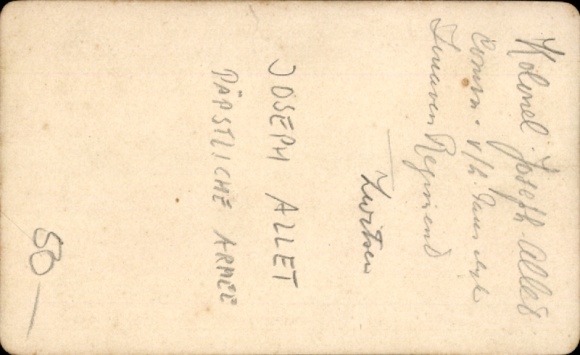 Kolonel Joseph Allet
Comm. v/h Pauselijk
Zouaven Regiment
Zwitser
JOSEPH ALLET
PÄPSTLICHE ARMEE
50—